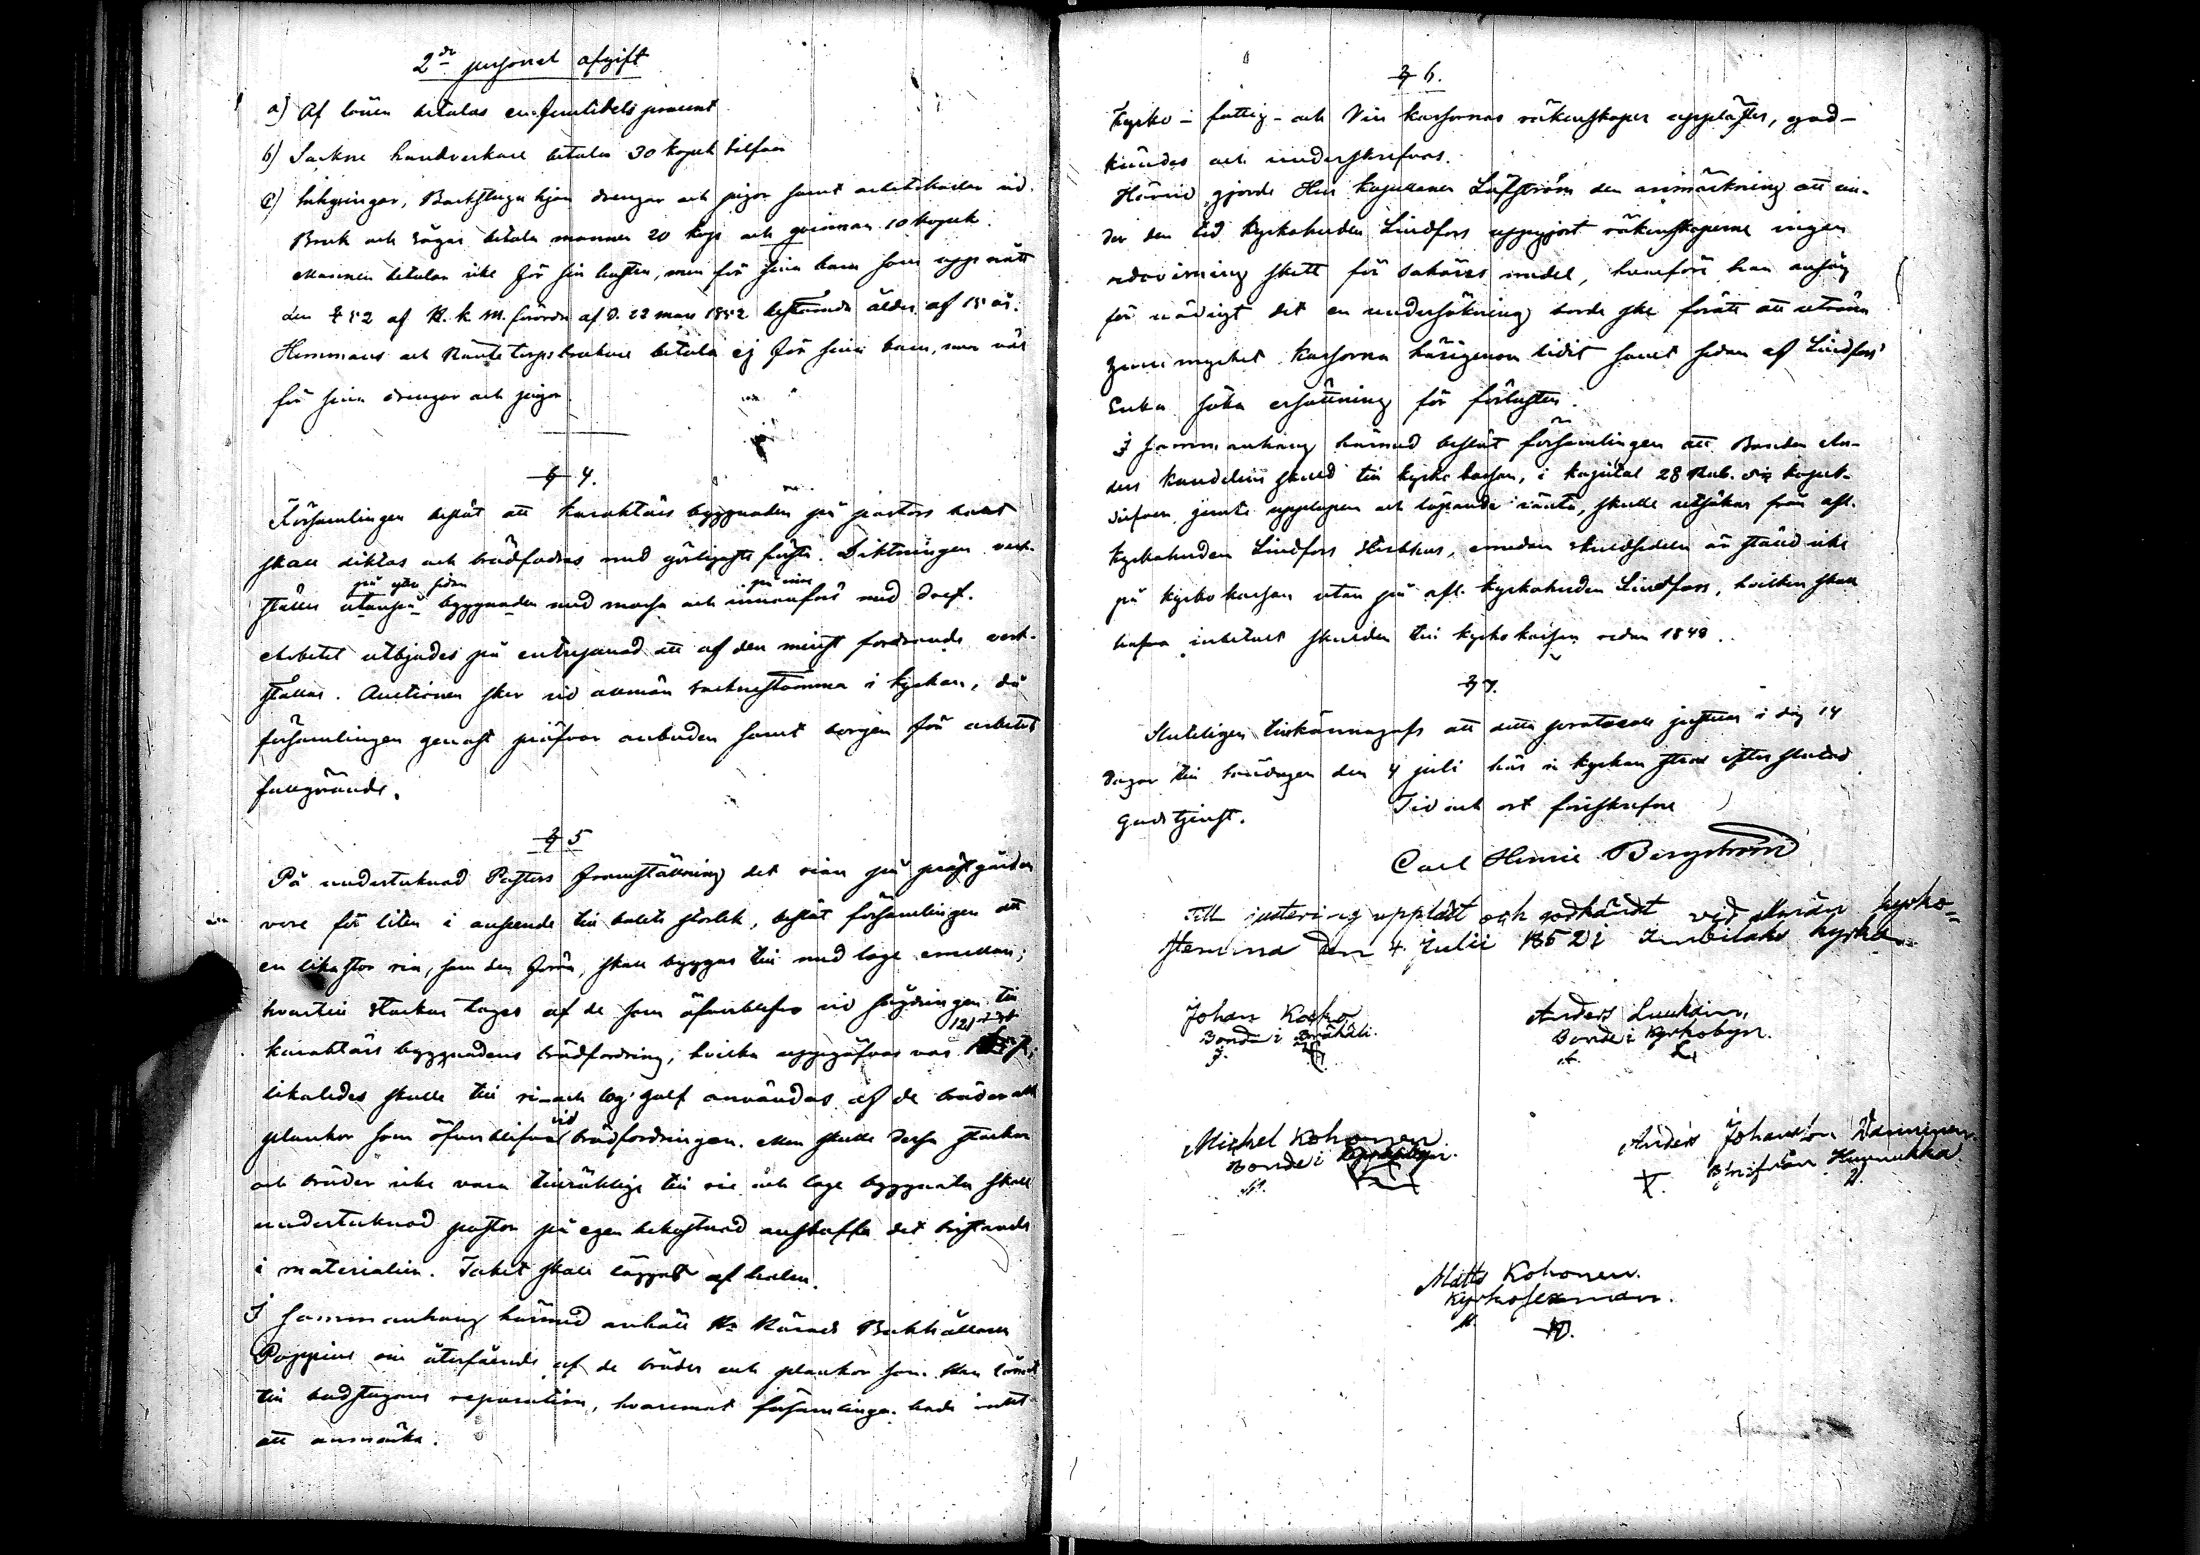 2de personel afgift
a) Af lönen betalas en femtedels procent
b) Sockne handverkare betalar 30 kopek silfver
c) Inhysingar, Backstugu hjon drengar och pigor samt arbetskarlar vid
Bruk och Sågar betala mannen 20 kop och qvinnan 10 kopek.
Mannen betalar icke för sin hustru, men för sina barn som uppnått
den § 52 af K. k. M. förordn af d. 22 mars 1852 bestämde ålder af 15 år.
Hemmans och Räntetorpsbrukare betala ej för sina barn, men väl
för sina drengar och pigor
§ 4.
Församlingen beslöt att karaktärs byggnaden på pastors bolet
skall diktas och brädfodras med görligaste första. Diktningen verk-
på yttre sidan på inre
ställes utanpå byggnaden med mossa och innanföre med dref.
Arbetet utbjudes på entreprenad att af den minst fordrande verk-
ställas. Auctionen sker vid allmän socknestämma i kyrkan, då
församlingen genast pröfvar anbuden samt borgen för arbetets
fullgörande.
§ 5
På undertecknad Pastors framställning det rian på prestgården
vore för liten i anseende till bolets storlek, beslöt församlingen att
en lika stor ria, som den förra, skall byggas till med loge emellan;
hvartill stockar tages af de som öfverblifva vid sågningen till
121 st
karaktärs byggnadens brädfordring, hvilka uppgifvas vara
likaledes skulle till ri- och log-golf användas af de bräder och
vid
plankor som öfverblifva brädfordringen. Men skulle dessa stockar
och bräder icke vara tillräcklige till rie och loge byggnaden skall
undertecknad pastor på egen bekostnad anskaffa det bristande
i materialier. Taket skall läggas af halm.
I sammanhang härmed anhöll Hr Härads Bokhållaren
Poppius om återfående af de bräder och plankor som han lånat
till badstugans reparation, hvaremot församlingen hade intet
att anmärka.
§ 6.
Kyrko- fattig- och Vin kassornas räkenskaper upplästes, god-
kändes och underskrefvos.
Härvid gjorde Herr kapellanen Löfström den anmärkning att un-
der den tid kyrkoherden Lindfors uppgjort räkenskaperne ingen
redovisning skett för sakörs medel, hvarföre han ansåg
för nödigt det en undersökning borde ske förätt att utröna
huru mycket kassorna härigenom lidit samt sedan af Lindfors'
Enka söka ersättning för förlusten.
I sammanhang härmed beslöt församlingen att Bonden An-
ders kandelins skuld till kyrko kassan, i kapital 28 Rub. kopek
silfver jemte upplupen och löpande ränta, skulle utsökas från afl.
kyrkoherden Lindfors Sterbhus, emedan skuldsedeln är ställd icke
på kyrkokassan utan på afl. kyrkoherden Lindfors, hvilken skall
hafva inbetalt skulden till kyrko kassan redan 1848.
§ 7.
Slutligen tillkännagafs att detta protocoll justeras i dag 14
dagar till söndagen den 4 juli här i kyrkan strax efter slutad
gudstjenst. Tid och ort förskrefne
Carl Henric Bergström
Till justering uppläst och godkändt vid allmän kyrko-
stemma den 4 Julii 1852 i kyrka.
Johan Kocko
Bonde i
J.
Anders Luukain,
Bonde i Kyrkobyn.
A. L.
Michel Kohonen.
Bonde i Kyrkobyn.
M.
Anders Johansson Vänninen
från Huumukka
Matts Kohonen.
Kyrkofexman.
M. K.